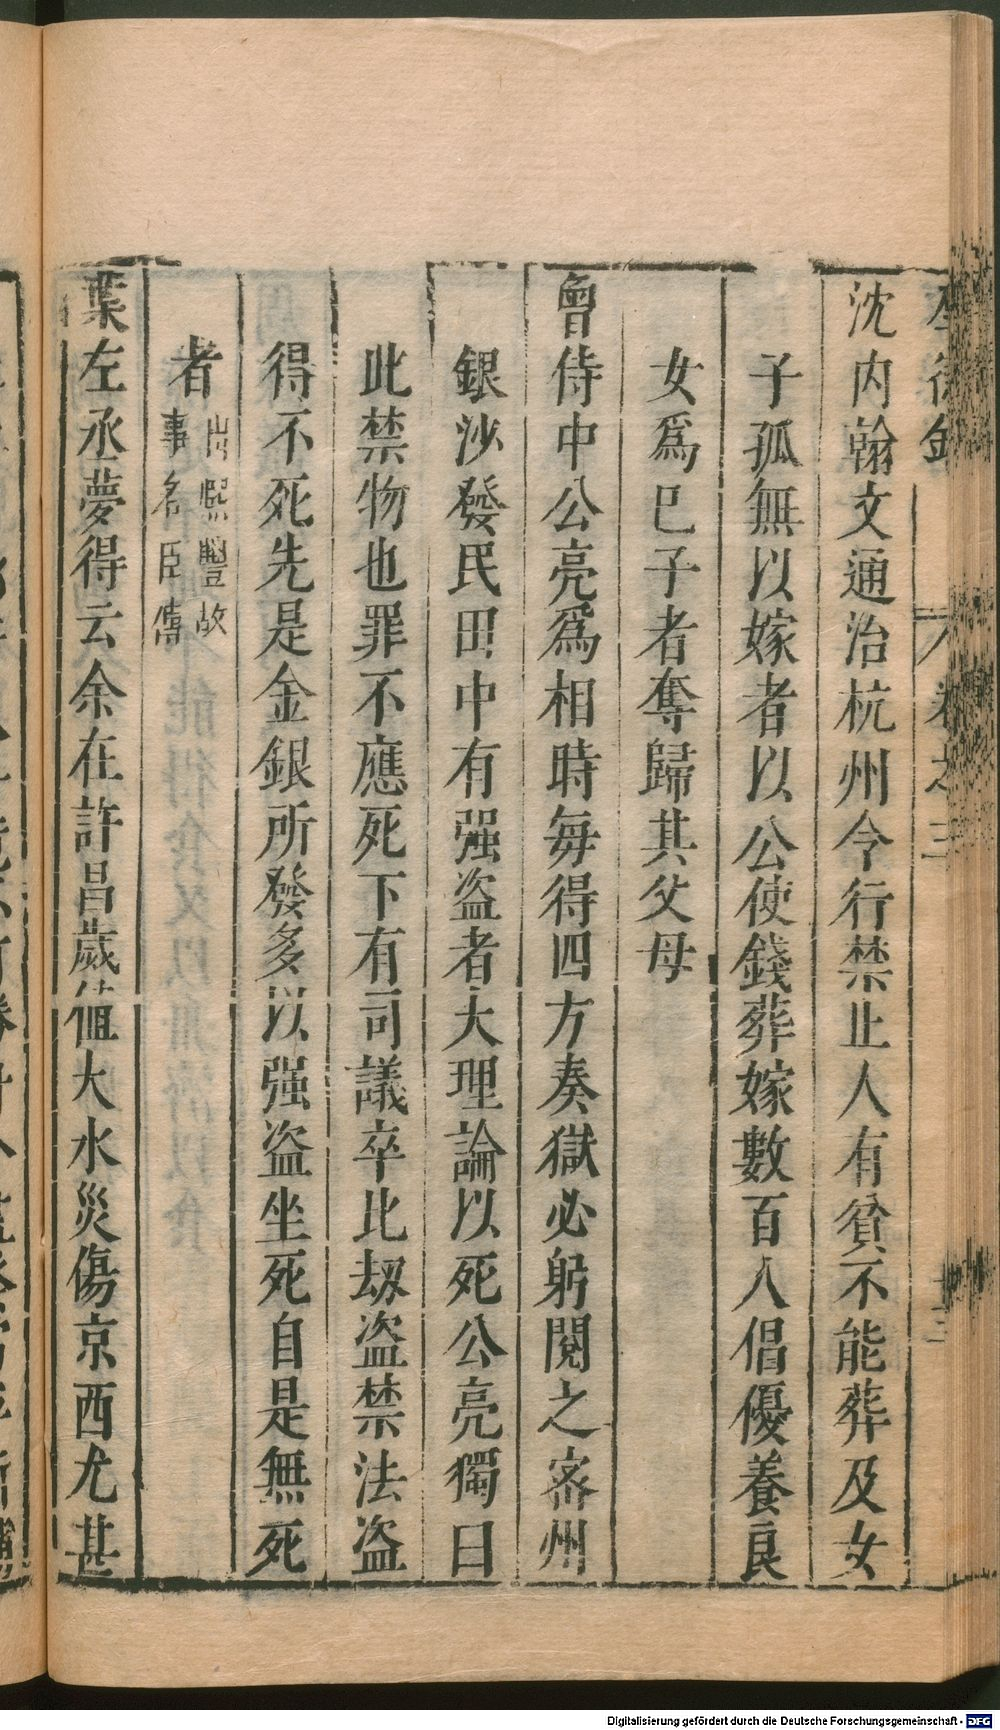 卷之三
沈內翰文通治杭州令行禁止人有貧不能葬及女
子孤無以嫁者以公使錢葬嫁數百人倡優養良
女爲已子者奪歸其父母
曾侍中公亮爲相時每得四方奏獄必躬閱之密州
銀沙發民田中有强盜者大理論以死公亮獨曰
此禁物也罪不應死下有司議卒比劫盜禁法盜
得不死先是金銀所發多以强盜坐死自是無死
者
出熙豐故
事名臣傳
葉左丞夢得云余在許昌歲值大水災傷京西尤甚
Digitalisierung gefördert durch die Deutsche Forschungsgemeinschaft - DFG